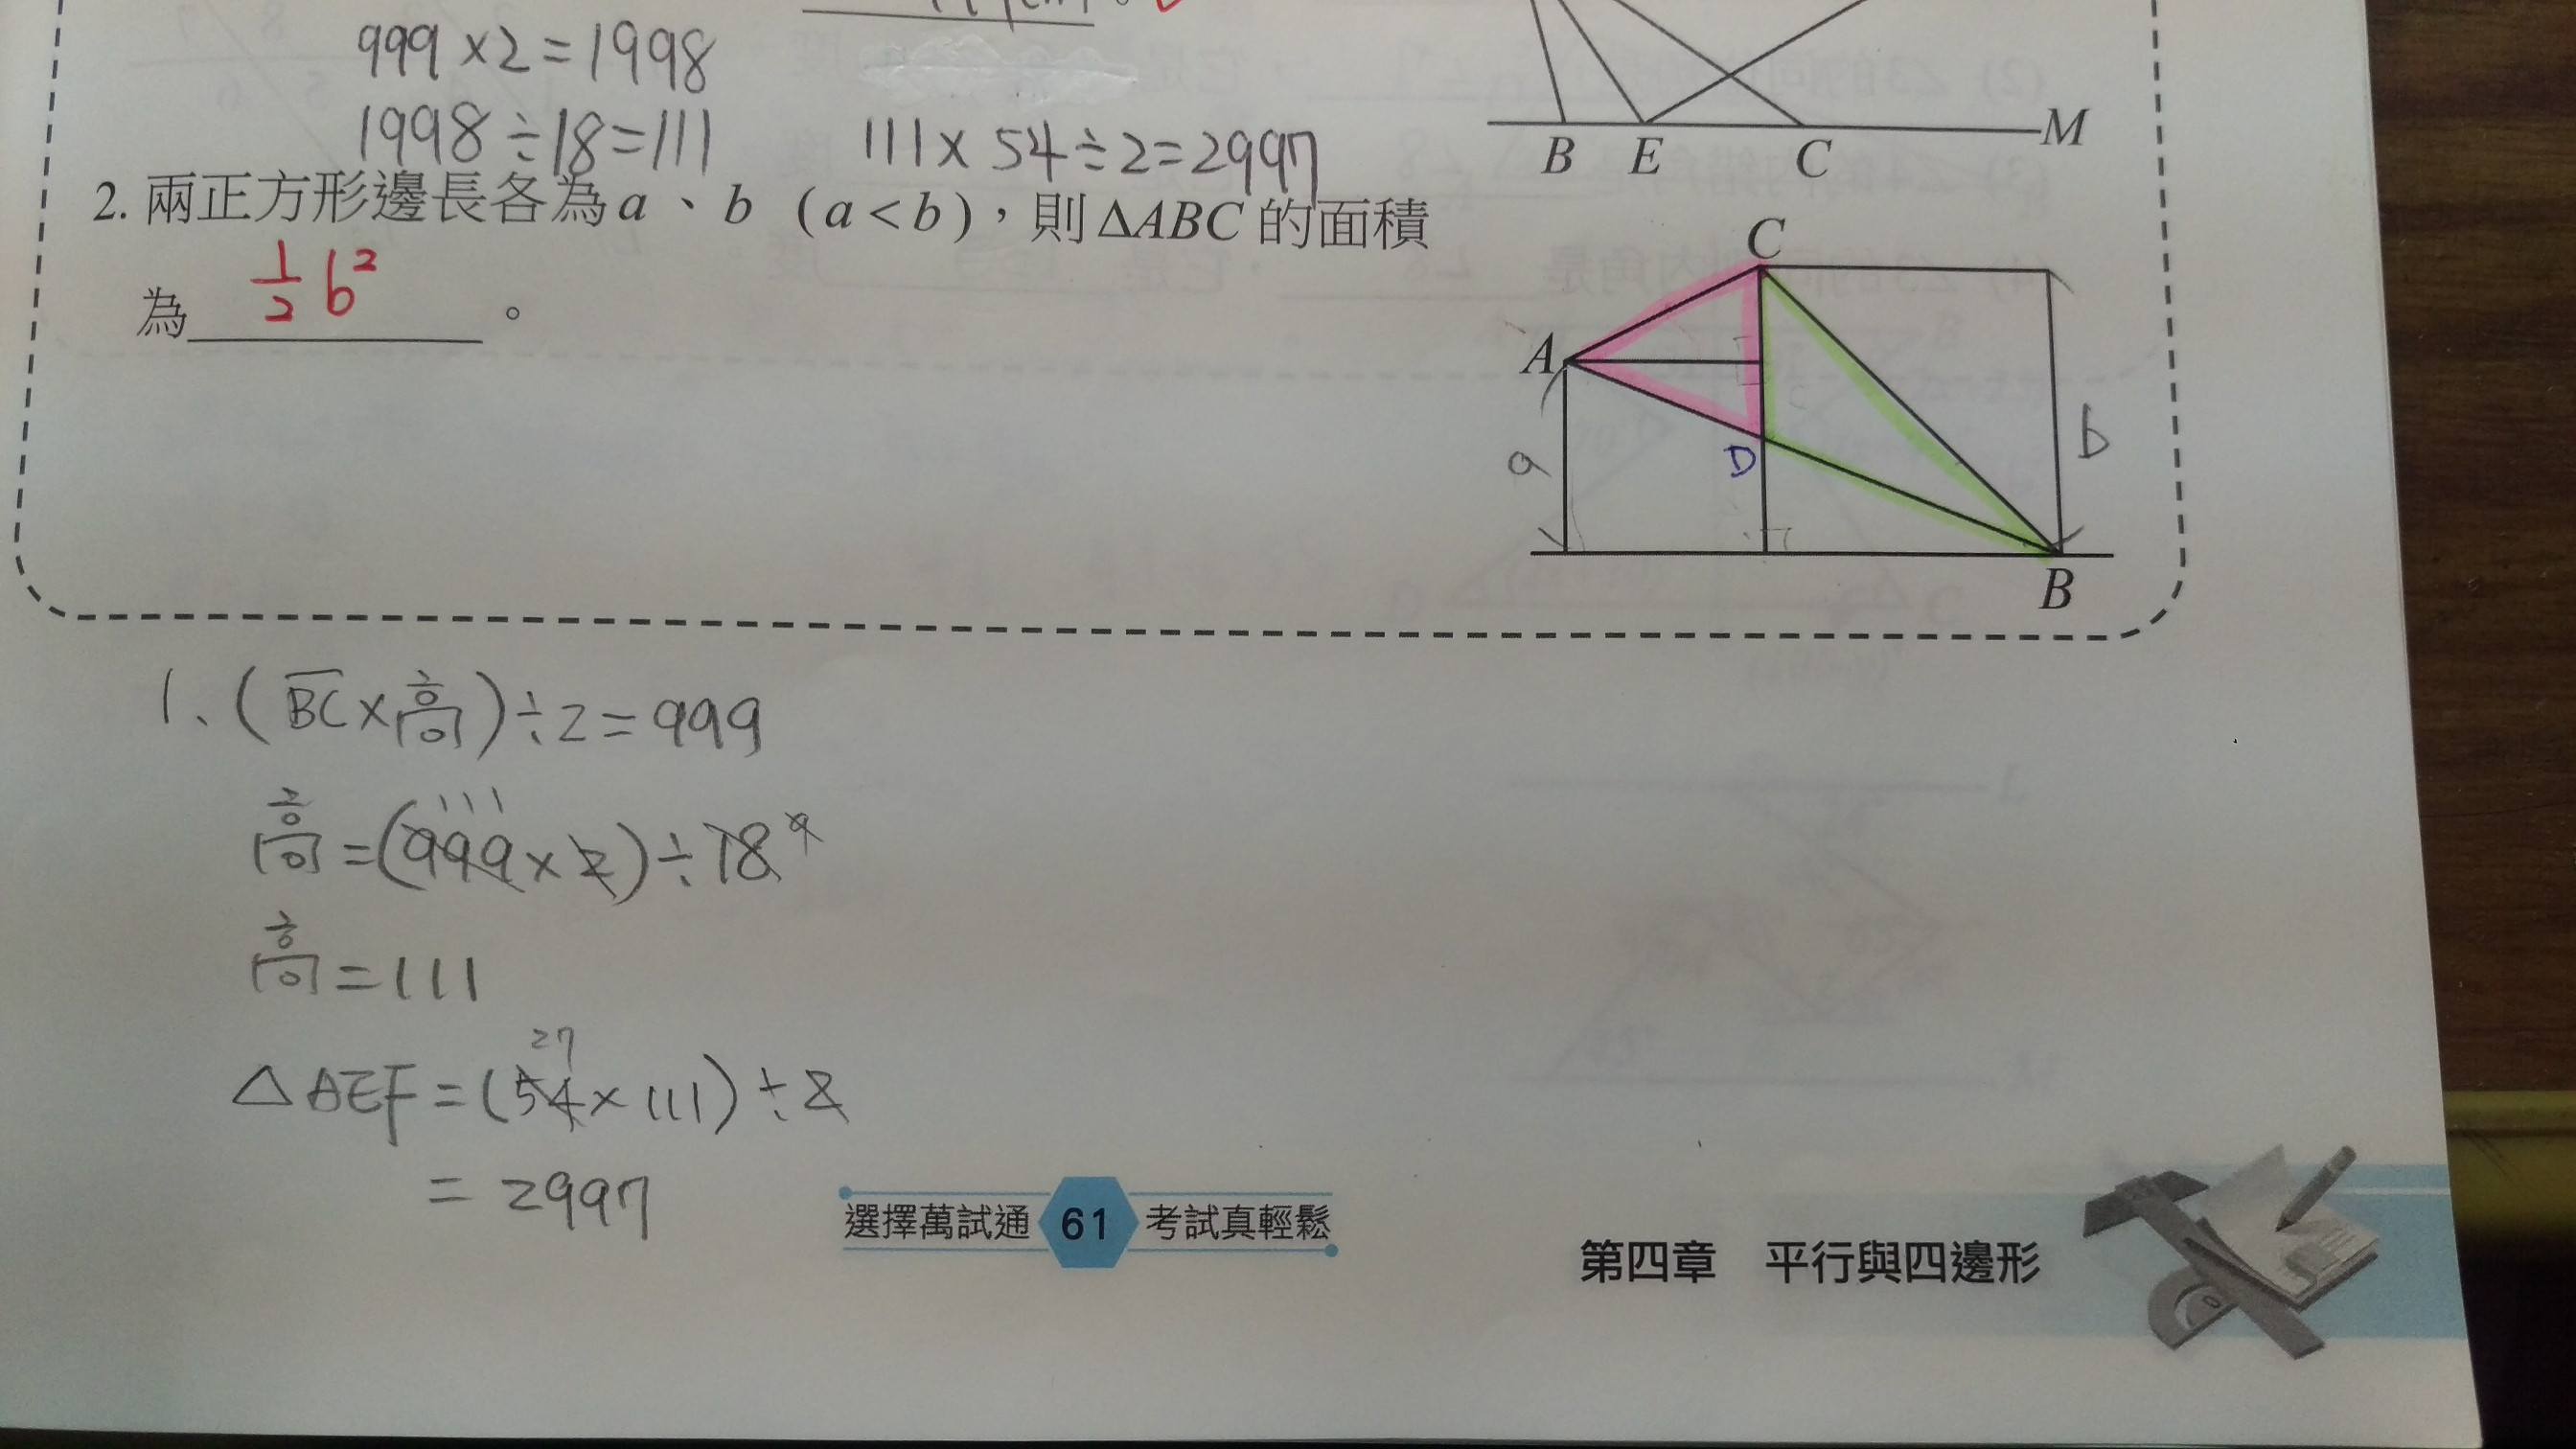 999×2=1998
1998÷18=111
111×54÷2=2997
B E C M
2. 兩正方形邊長各為a、b (a<b),則ΔABC的面積
為 1/2 b² 。
C
A
D
a
b
B
1、(BC×高)÷2=999
111
高=(999×2)÷18 9
高=111
27
△AEF=(54×111)÷2
=2997
選擇萬試通 61 考試真輕鬆
第四章 平行與四邊形